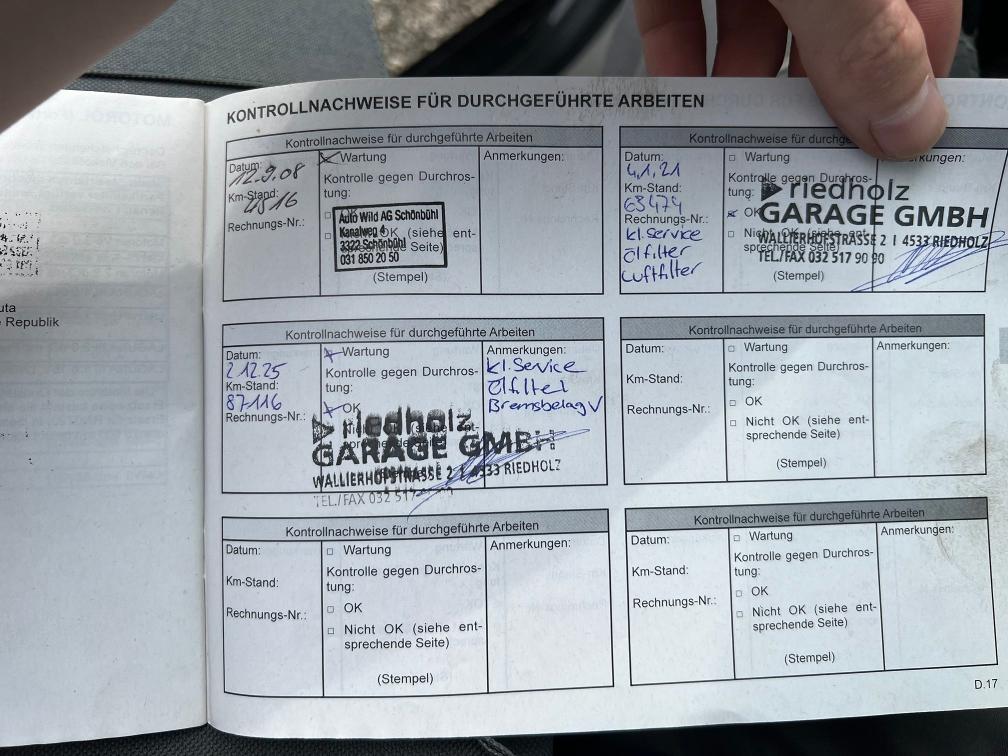 uta
Republik
KONTROLLNACHWEISE FÜR DURCHGEFÜHRTE ARBEITEN
Kontrollnachweise für durchgeführte Arbeiten
Datum:
12.9.08
Km-Stand:
Rechnungs-Nr.:
Wartung
Kontrolle gegen Durchros-
tung:
OK (siehe ent-
sprechende Seite)
Auto Wild AG Schönbühl
Kanalweg 4
3322 Schönbühl
031 850 20 50
(Stempel)
Anmerkungen:
Kontrollnachweise für durchgef
Datum:
4.1.21
Km-Stand:
63474
Rechnungs-Nr.:
kl.service
ölfilter
Luftfilter
Wartung
Kontrolle gegen Durchros-
tung:
OK
Nicht OK (siehe ent-
sprechende Seite)
riedholz
GARAGE GMBH
WALLIERHOFSTRASSE 2 I 4533 RIEDHOLZ
TEL./FAX 032 517 90 90
(Stempel)
rkungen:
Kontrollnachweise für durchgeführte Arbeiten
Datum:
2.12.25
Km-Stand:
87116
Rechnungs-Nr.:
Wartung
Kontrolle gegen Durchros-
tung:
OK
riedholz
GARAGE GMBH
WALLIERHOFSTRASSE 2 I 4533 RIEDHOLZ
TEL./FAX 032 517
Anmerkungen:
kl.Service
ölfilter
Bremsbelag V
Kontrollnachweise für durchgeführte Arbeiten
Datum:
Km-Stand:
Rechnungs-Nr.:
Wartung
Kontrolle gegen Durchros-
tung:
OK
Nicht OK (siehe ent-
sprechende Seite)
(Stempel)
Anmerkungen:
Kontrollnachweise für durchgeführte Arbeiten
Datum:
Km-Stand:
Rechnungs-Nr.:
Wartung
Kontrolle gegen Durchros-
tung:
OK
Nicht OK (siehe ent-
sprechende Seite)
(Stempel)
Anmerkungen:
Kontrollnachweise für durchgeführte Arbeiten
Datum:
Km-Stand:
Rechnungs-Nr.:
Wartung
Kontrolle gegen Durchros-
tung:
OK
Nicht OK (siehe ent-
sprechende Seite)
(Stempel)
Anmerkungen:
D.17